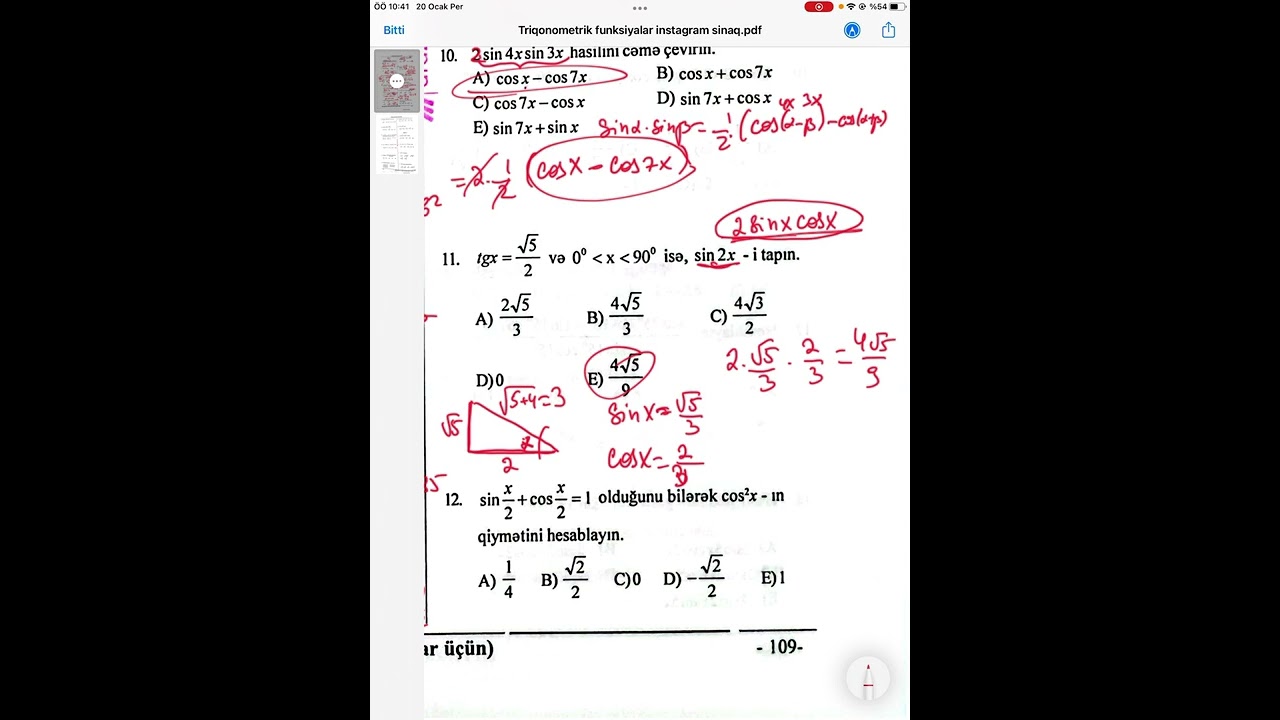 ÖÖ 10:41 20 Ocak Per
%54
Bitti
Triqonometrik funksiyalar instagram sinaq.pdf
10. 2 sin 4x sin 3x hasilini cəmə çevirin.
A) cos x − cos 7x B) cos x + cos 7x
C) cos 7x − cos x D) sin 7x + cos x
4x 3x
E) sin 7x + sin x sinα·sinβ = 1/2 (cos(α−β) − cos(α+β)
= 2·1/2 (cosx − cos7x)
2sinxcosx
11. tgx = √5/2 və 0⁰ < x < 90⁰ isə, sin 2x - i tapın.
A) 2√5/3 B) 4√5/3 C) 4√3/2
2·√5/3 · 2/3 = 4√5/9
D) 0 E) 4√5/9
√5+4=3
√5
sinx = √5/3
2
cosx = 2/3
12. sin x/2 + cos x/2 = 1 olduğunu bilərək cos²x - ın
qiymətini hesablayın.
A) 1/4 B) √2/2 C) 0 D) −√2/2 E) 1
ar üçün) - 109-